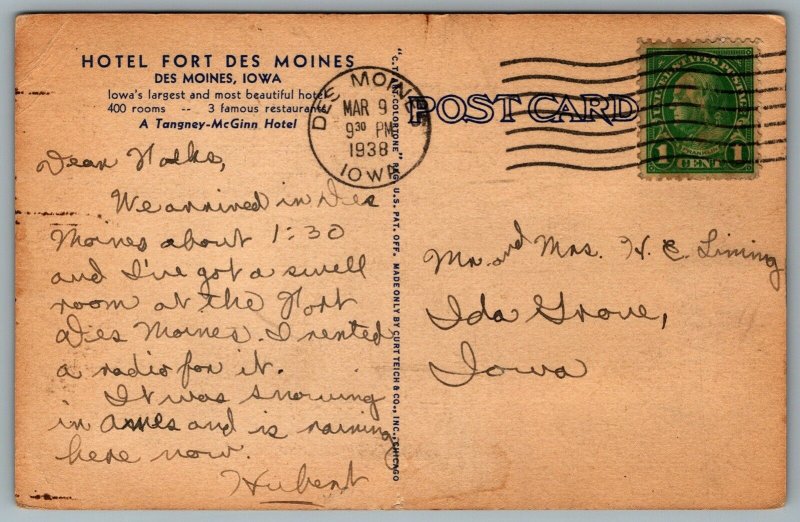 HOTEL FORT DES MOINES
DES MOINES, IOWA
Iowa's largest and most beautiful hotel
400 rooms -- 3 famous restaurants
A Tangney-McGinn Hotel
Dear Folks,
We arrived in Des
Moines about 1:30
and I've got a swell
room at the Fort
Des Moines. I rented
a radio for it.
It was snowing
in Ames and is raining
here now.
Hubert
"C.T. ART-COLORTONE" REG. U.S. PAT. OFF. MADE ONLY BY CURT TEICH & CO., INC., CHICAGO
DES MOINES
MAR 9
9 30 PM
1938
IOWA
POST CARD
UNITED STATES POSTAGE
FRANKLIN
1 CENT 1
Mr. and Mrs. H. E. Liming
Ida Grove,
Iowa